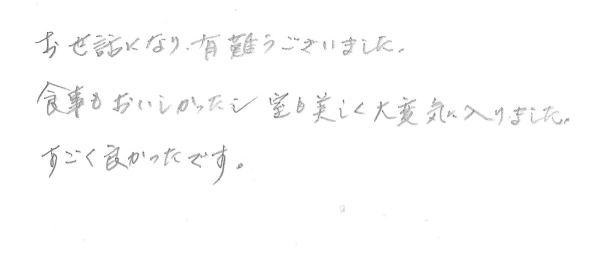 お世話になり、有難うございました。
食事もおいしかったし 室も美しく大変気に入りました。
すごく良かったです。